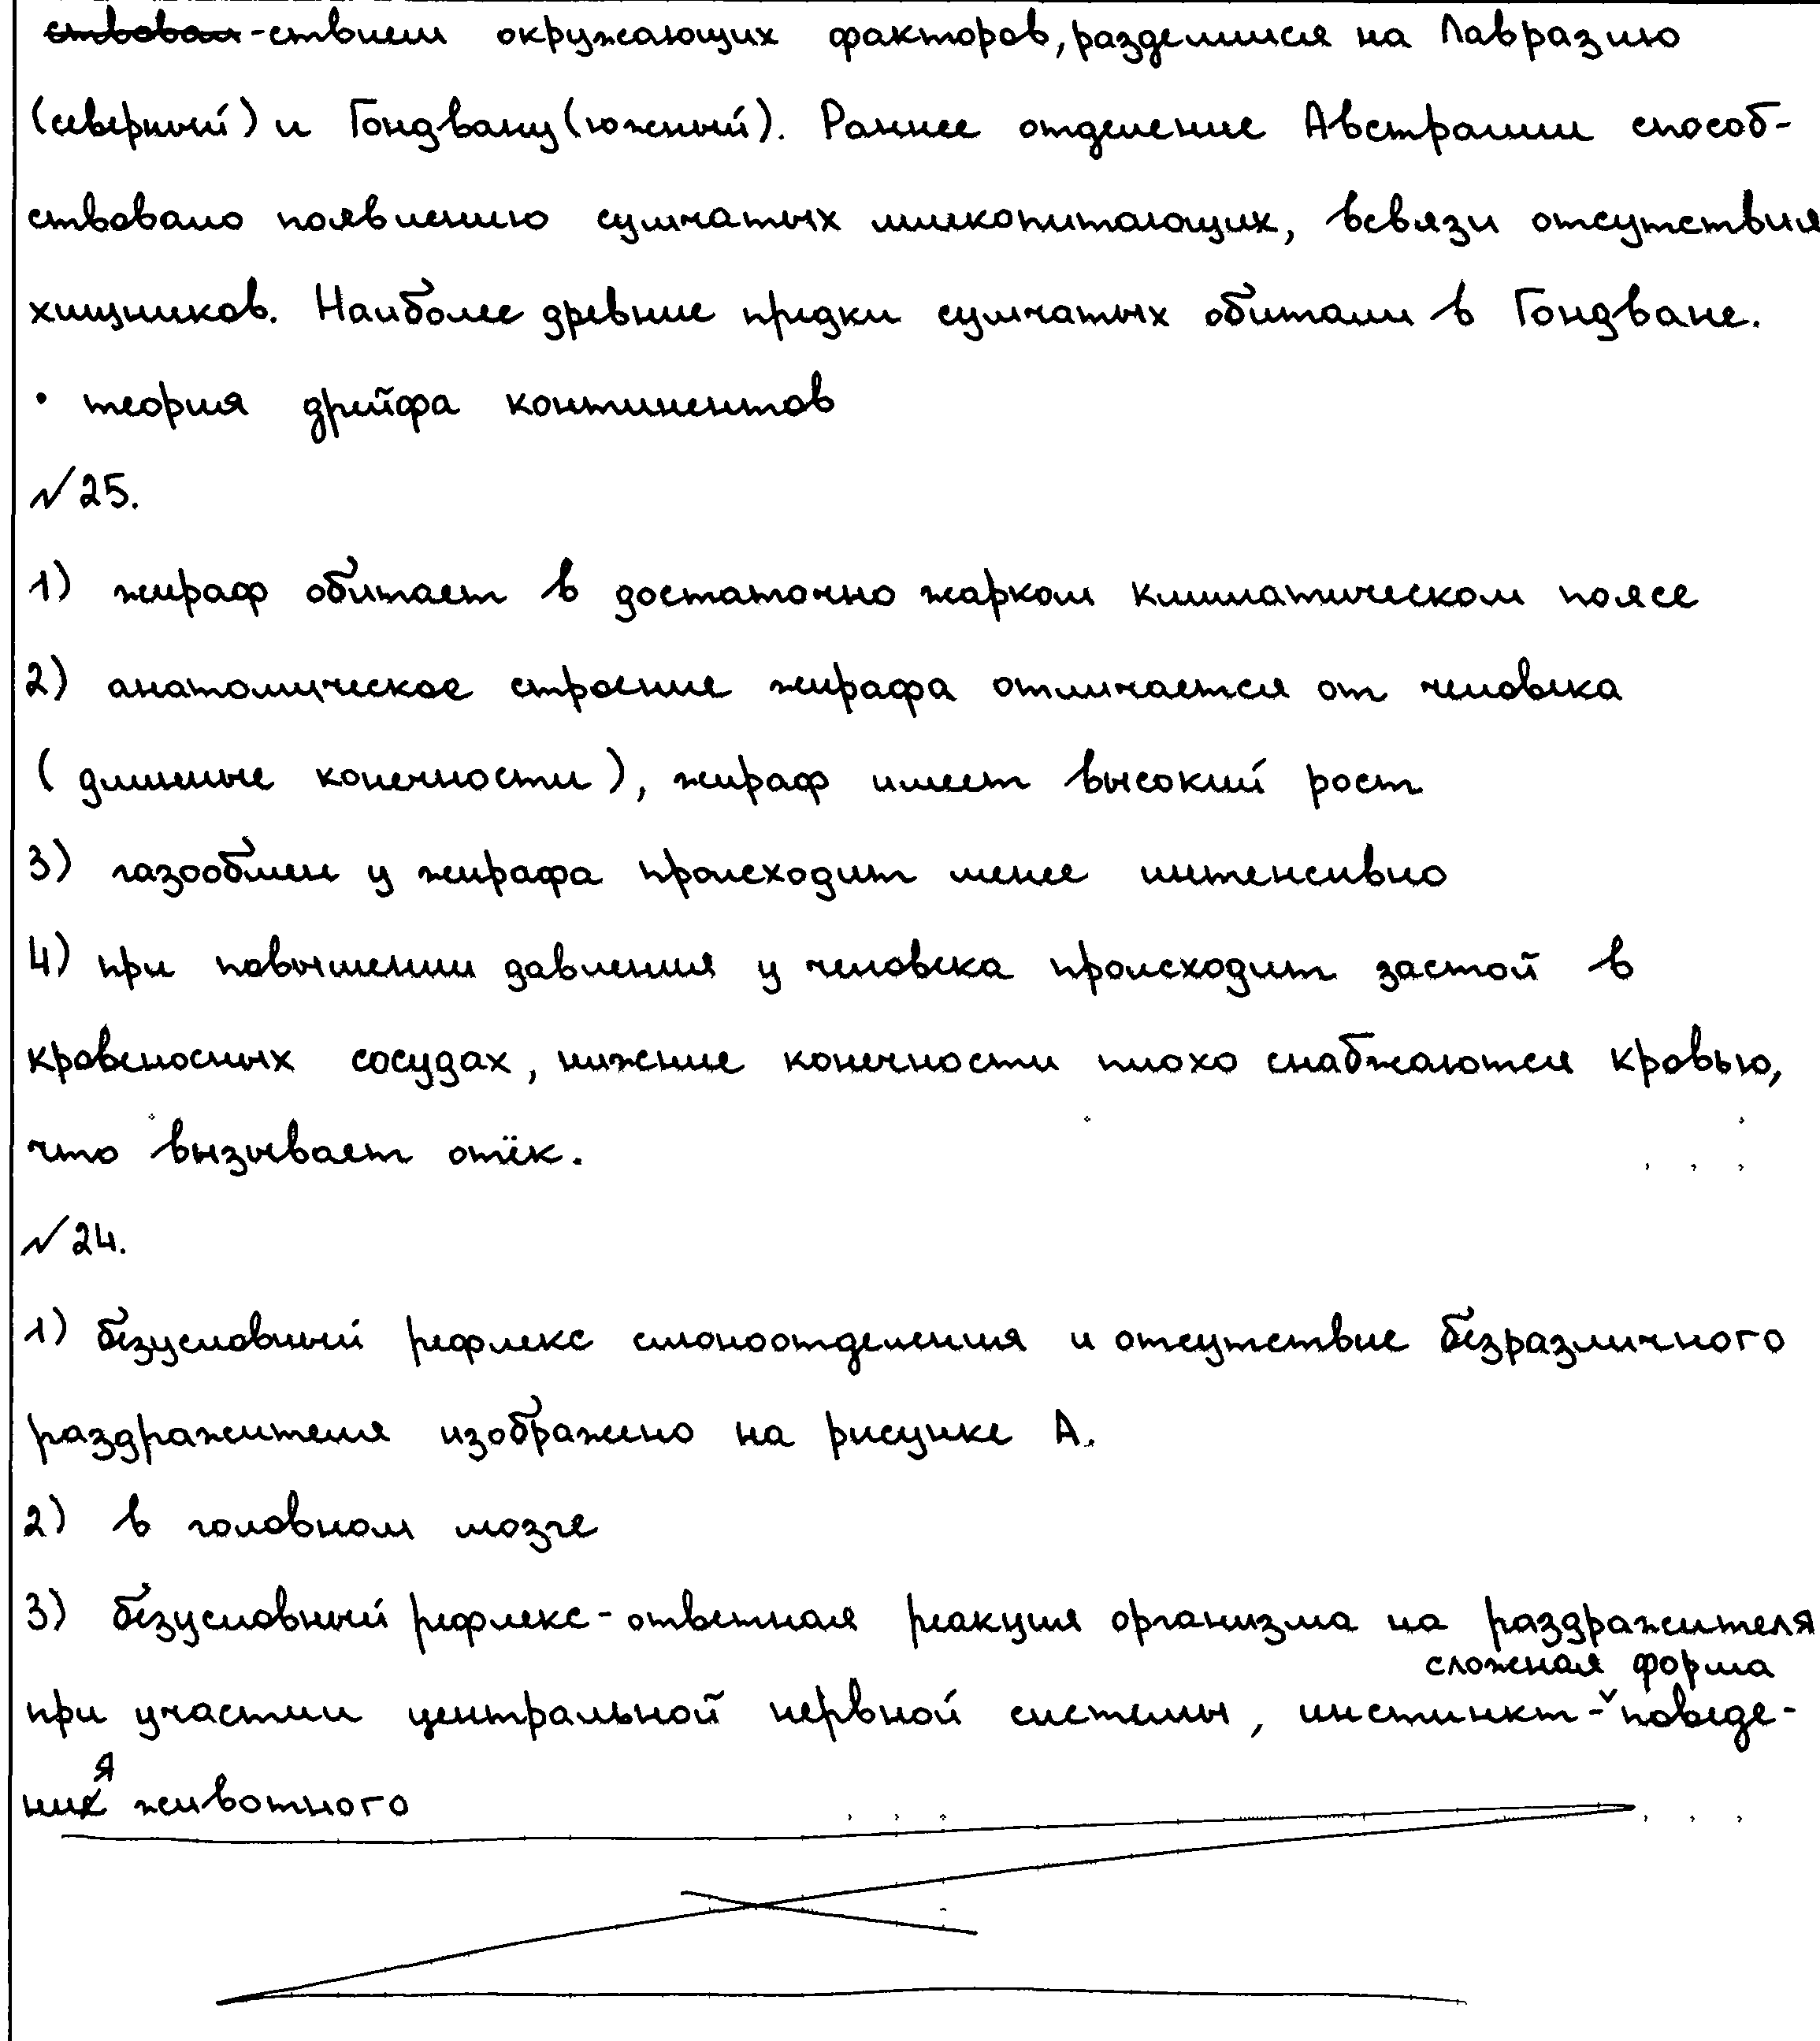 -ствием окружающих факторов, разделился на Лавразию
(северный) и Гондвану (южный). Раннее отделение Австралии способ-
ствовало появлению сумчатых млекопитающих, всвязи отсутствия
хищников. Наиболее древние предки сумчатых обитали в Гондване.
• теория дрейфа континентов
№25.
1) жираф обитает в достаточно жарком климатическом поясе
2) анатомическое строение жирафа отличается от человека
(длинные конечности), жираф имеет высокий рост
3) газообмен у жирафа происходит менее интенсивно
4) при повышении давления у человека происходит застой в
кровеносных сосудах, нижние конечности плохо снабжаются кровью,
что вызывает отёк.
№24.
1) безусловный рефлекс слюноотделения и отсутствие безразличного
раздражителя изображено на рисунке А.
2) в головном мозге
3) безусловный рефлекс - ответная реакция организма на раздражителя
при участии центральной нервной системы, инстинкт - сложная форма поведе-
ния животного